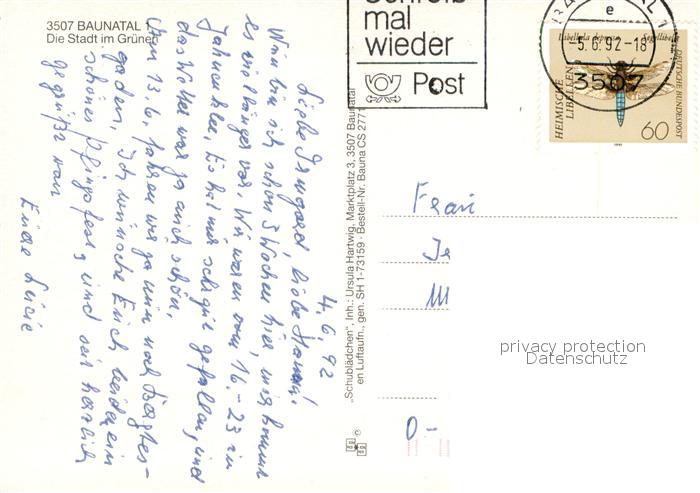 3507 BAUNATAL 1
Die Stadt im Grünen
4.6.92
Liebe Irmgard, liebe Hanni!
Nun bin ich schon 3 Wochen hier, mir kommt
es viel länger vor. Wir waren vom 16.-23 in
Es hat mir sehr gut gefallen, und
das Wetter war ja auch schön.
Am 13.6. fahren wir ja nun nach Berchtes-
gaden. Ich wünsche Euch beiden ein
schönes Pfingstfest, und seid herzlich
gegrüßt von
Eure Luzie
„Schublädchen", Inh.: Ursula Hartwig, Marktplatz 3, 3507 Baunatal
en Luftaufn., gen. SH 1-73159 · Bestell-Nr. Bauna CS 2771
©
Schreib
mal
wieder
Post
e
-5.6.92-18
3507
Libellula depressa Segellibelle
HEIMISCHE
LIBELLEN
DEUTSCHE BUNDESPOST
60
1991
Frau
Ir
M
O-
privacy protection
Datenschutz